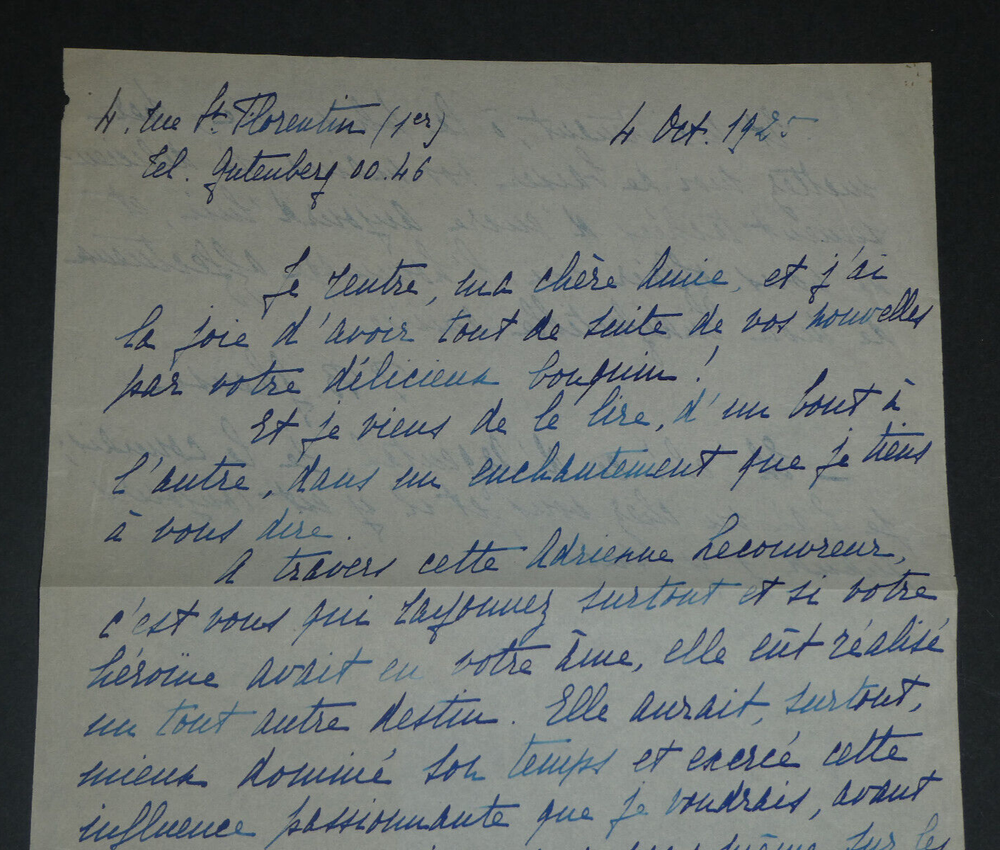 4. rue St. Florentin (1er) 4 Oct. 1925
Tel. Gutenberg 00.46
Je rentre, ma chère Amie, et j'ai
la joie d'avoir tout de suite de vos nouvelles
par votre délicieux bouquin !
Et je viens de le lire, d'un bout à
l'autre, dans un enchantement que je tiens
à vous dire.
A travers cette Adrienne Lecouvreur,
c'est vous qui rayonnez surtout et si votre
héroïne avait eu votre âme, elle eût réalisé
un tout autre destin. Elle aurait, surtout,
mieux dominé son temps et exercé cette
influence passionnante que je voudrais, avant
même sur les